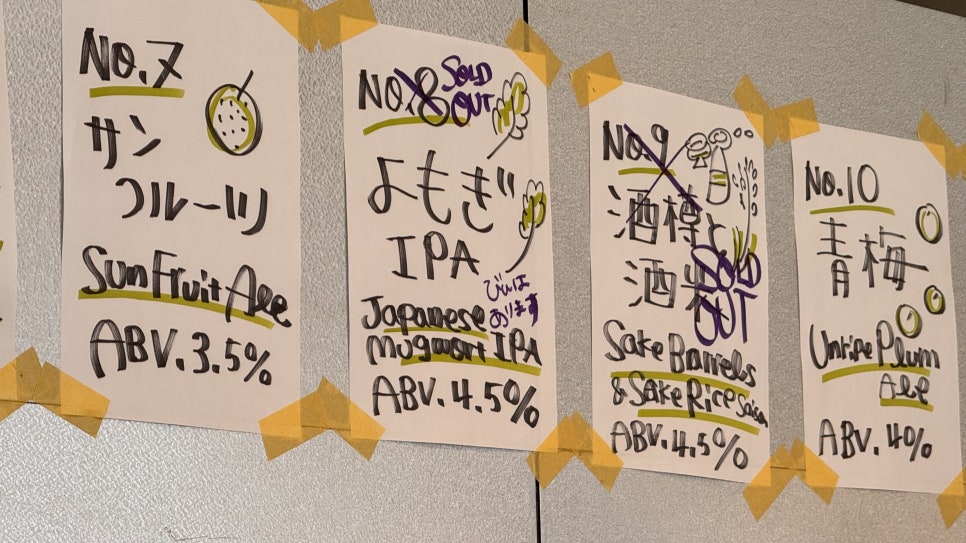 No.7
サン
フルーツ
Sun Fruit Ale
ABV.3.5%
No.8
SOLD
OUT
よもぎ
IPA
びんは
あります
Japanese
Mugwort IPA
ABV.4.5%
No.9
酒樽と
酒米
SOLD
OUT
Sake Barrels
& Sake Rice Saison
ABV.4.5%
No.10
青梅
Unripe Plum
Ale
ABV.4%